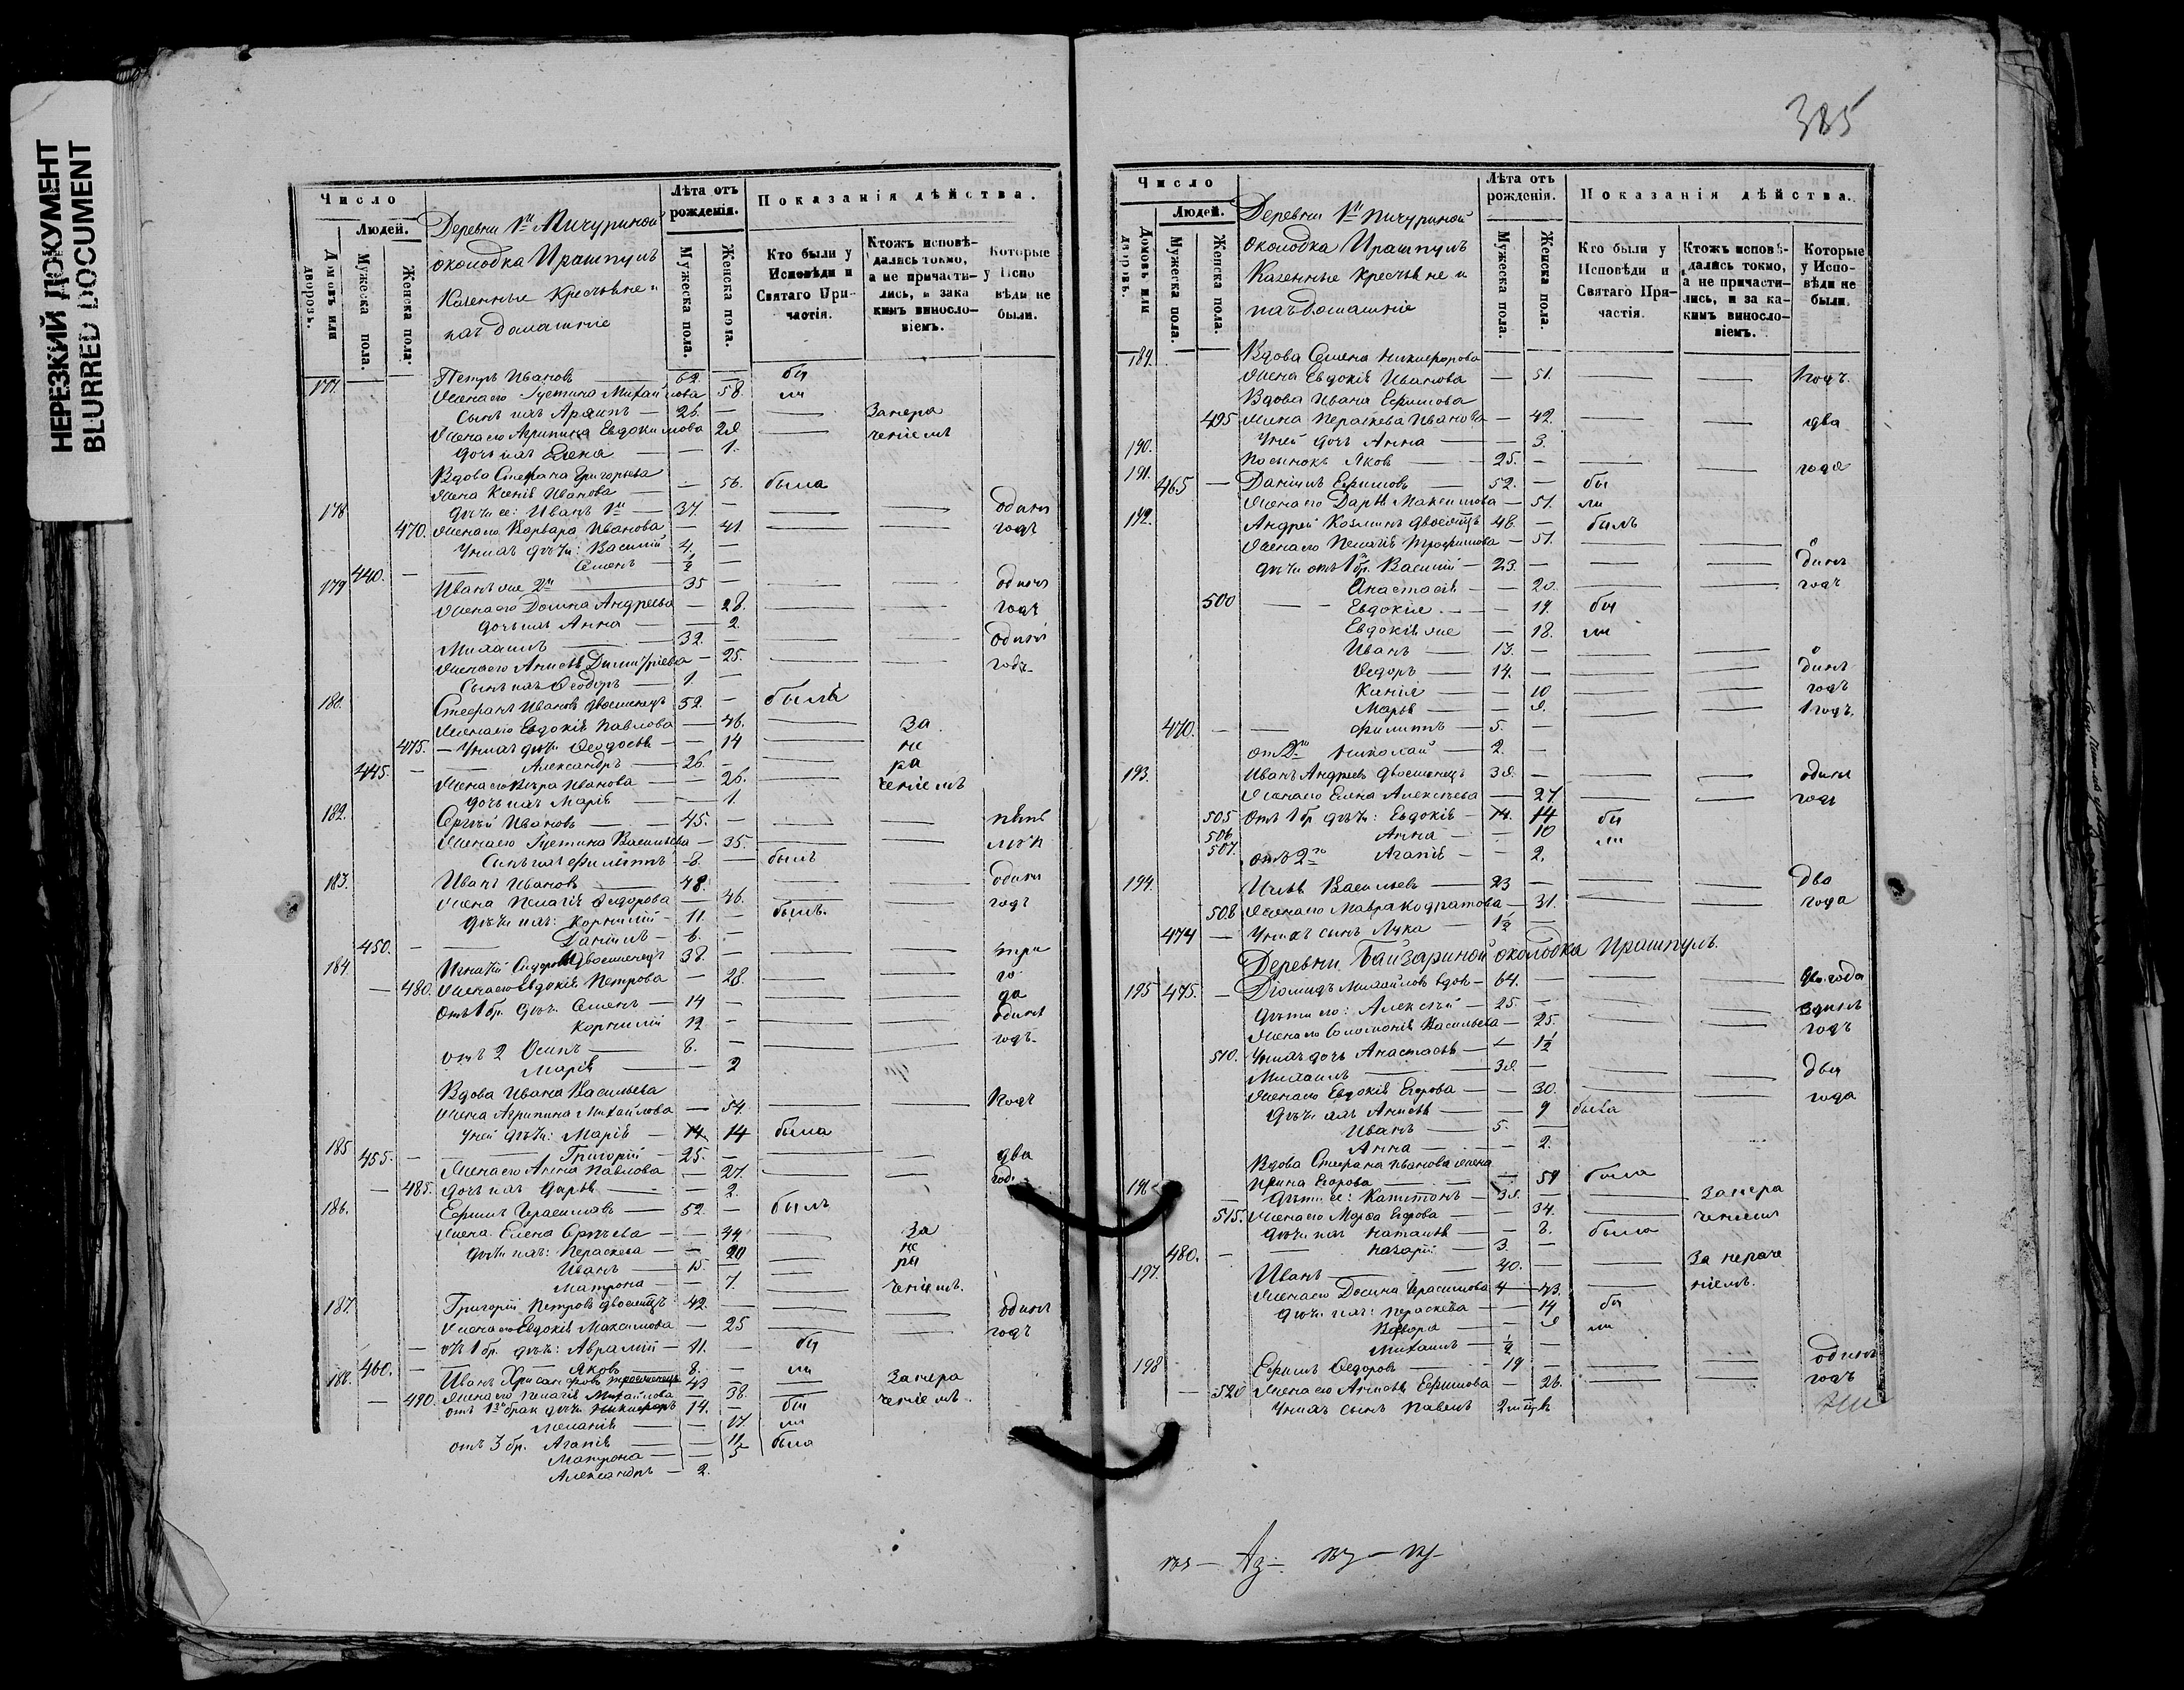 НЕРЕЗКИЙ ДОКУМЕНТ
BLURRED DOCUMENT
Число
Людей.
Домовъ или дворовъ.
Мужеска пола.
Женска пола.
Деревни 1й Пичуриной
околодка Ирашпулъ
Казенные крестьяне и
ихъ домашніе
Лѣта отъ рожденія.
Мужеска пола.
Женска пола.
Показанія дѣйства.
Кто были у Исповѣди и Святаго Причастія.
Ктожъ исповѣдались токмо, а не причастились, и за какимъ винословіемъ.
Которые у Исповѣди не были.
177. Петръ Ивановъ 62. — бы
Жена его Густина Михайлова — 58. ли
Сынъ ихъ Архипъ — 26. — — Занера
Жена его Агрипина Евдокимова 28 — ченіемъ
Дочь ихъ Елена — — 1.
Вдова Стефана Григорьева
Жена Ксенія Иванова — 56. была
178 Дѣти ее: Иванъ 1й — 37. — — — одинъ
470. Жена его Варвара Иванова — 41 — — годъ
У нихъ дѣти: Василій 4. —
440. — Семенъ — ½ —
179 Иванъ же 2й 35 — — — одинъ
Жена его Домна Андреева — 28. — — годъ
Дочь ихъ Анна — — 2.
Михаилъ — 32. — — — одинъ
Жена его Анисья Димитріева — 25. — — годъ
Сынъ ихъ Ѳеодоръ — 1 —
180. Стефанъ Ивановъ двоеженецъ 52. — былъ
Жена его Евдокія Павлова — 46. — За
475. — У нихъ дѣти Ѳеодосья — — 14 — не
445. — Александръ — 26. — — ра
Жена его Вѣра Иванова — — 26. — ченіемъ
Дочь ихъ Марія — — 1.
182. Сергѣй Ивановъ — 45. — — — пять
Жена его Густина Васильева — 35. — — лѣтъ
Сынъ ихъ Филиппъ — 8. — былъ
183. Иванъ Ивановъ — 48. — — одинъ
Жена Пелагія Ѳедорова — 46. — — годъ
Дѣти ихъ: Корнилій — 11. — былъ.
450. — Даніилъ — 6. —
184. Игнатій Сидоровъ Двоеженецъ 38. — — — три
— 480. Жена его Евдокія Петрова — 28. — — го
Отъ 1 бр. дѣти Семенъ — 14 — — — да
Корнилій 12 — — — одинъ
отъ 2 Осипъ — 8. — — — годъ.
Марія — — 2
Вдова Ивана Васильева
Жена Агрипина Михайлова — 54. — — 1 годъ
У ней дѣти: Марія — 14 14 была
185 455. — Григорій — 25. — — — два
Жена его Анна Павлова — 27. — — года
— 485. Дочь ихъ Дарья — — 2.
186. Ефимъ Герасимовъ — 52. — былъ
Жена Елена Сергѣева — — 44. — За
Дѣти ихъ: Пераскева — — 20 — не
Иванъ — 15. — — ра
Матрона — — 7. — ченіемъ.
187. Григорій Петровъ двоеженецъ 42. — — — одинъ
Жена его Евдокія Максимова — 25 — — годъ
— отъ 1 бр. дѣти: Аврамій — 11. — бы
460. — Яковъ — 8. — ли
188. Иванъ Хрисанфовъ троеженецъ 43 — — Занера
— 490. Жена его Пелагія Михайлова — 38. — ченіемъ.
отъ 1го брак дѣти Никифоръ 14. — бы
Меланія — 17 ли
отъ 3 бр. Агапія — — 11 была
Матрона — — 5
Александръ — 2.
385
Число
Людей.
Домовъ или дворовъ.
Мужеска пола.
Женска пола.
Деревни 1й Пичуриной
околодка Ирашпулъ
Казенные крестьяне и
ихъ домашніе
Лѣта отъ рожденія.
Мужеска пола.
Женска пола.
Показанія дѣйства.
Кто были у Исповѣди и Святаго Причастія.
Ктожъ исповѣдались токмо, а не причастились, и за какимъ винословіемъ.
Которые у Исповѣди не были.
189. Вдова Семена Никифорова
Жена Евдокія Иванова — 51. — — 1 годъ.
Вдова Ивана Ефимова
495 Жена Пераскева Иванова — 42. — — два
190. У ней дочь Анна — — 3.
Пасынокъ Яковъ — 25. — — — года
191. 465 — Даніилъ Ефимовъ — 52. — бы
Жена его Дарья Максимова — 51. ли
192. Андрей Козминъ двоеженецъ 48. — былъ
Жена его Пелагія Трофимова — 51. — — о
дѣти отъ 1 бр. Василій — 23. — — — динъ
Анастасія — — 20. — — годъ
500 — Евдокія — — 19. бы
Евдокія же — 18. ли
Иванъ — 13. — — — о
Ѳедоръ — 14. — — — динъ
Ксенія — — 10 — — годъ
Марья — — 8. — — 1 годъ.
470. — Филиппъ — 5. —
отъ 2го Николай — 2. —
193. Иванъ Андреевъ двоеженецъ 38. — — — одинъ
Жена его Елена Алексѣева — 27. — — годъ
505 Отъ 1 бр дѣти: Евдокія — 14. 14 бы
506. Анна — — 10 ли
507. отъ 2го Агапія — — 2.
194. Илья Васильевъ — 23 — — — Два
508 Жена его Мавра Кодратова — 31. — — года
474 — У нихъ сынъ Лука — 1½ —
Деревни Байзариной околодка Ирашпулъ.
195 475. — Діомидъ Михайловъ вдовъ — 64. — — — два года
Дѣти его: Алексѣй — 25. — — — одинъ
Жена его Соломонія Васильева — 25. — — годъ
510. У нихъ дочь Анастасья — — 1½
Михаилъ — 38. — — — два
Жена его Евдокія Егорова — — 30. — — года
Дѣти ихъ Анисья — — 9 была
Иванъ — 5. —
Анна — — 2.
Вдова Стефана Иванова жена
196 Ирина Егорова — — 59 была
— Дѣти ее: Капитонъ — 38. — — Занера
515. Жена его Марѳа Егорова — — 34. — ченіемъ
Дѣти ихъ Наталья — 8. была
480. — Назарій — 3. —
197. Иванъ — 40. — — За нераче
Жена его Домна Герасимова — 43. — ніемъ.
Дѣти ихъ: Пераскева — — 14 бы
Варвара — — 8 ли
Михаилъ — ½ —
198 Ефимъ Ѳедоровъ — 19 — — — одинъ
— 520 Жена его Анисья Ефимова — 26. — — годъ
У нихъ сынъ Павелъ 2